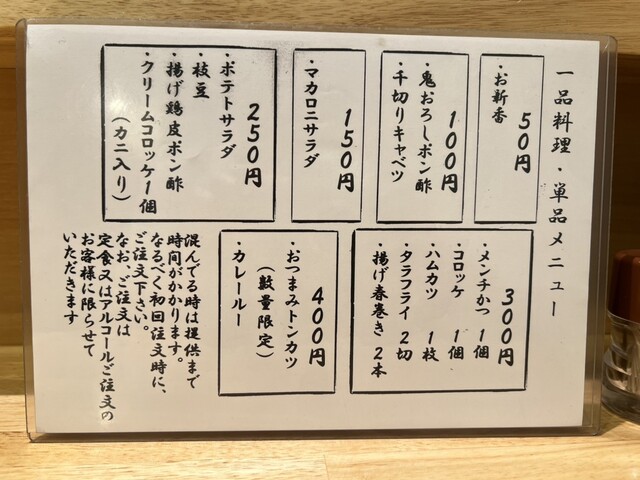 一品料理・単品メニュー
50円
・お新香
100円
・鬼おろしポン酢
・千切りキャベツ
150円
・マカロニサラダ
250円
・ポテトサラダ
・枝豆
・揚げ鶏皮ポン酢
・クリームコロッケ1個
（カニ入り）
300円
・メンチかつ 1個
・コロッケ 1個
・ハムカツ 1枚
・タラフライ 2切
・揚げ春巻き 2本
400円
・おつまみトンカツ
（数量限定）
・カレールー
混んでる時は提供まで
時間がかかります。
なるべく初回注文時に、
ご注文下さい。
なお、ご注文は
定食又はアルコールご注文の
お客様に限らせて
いただきます